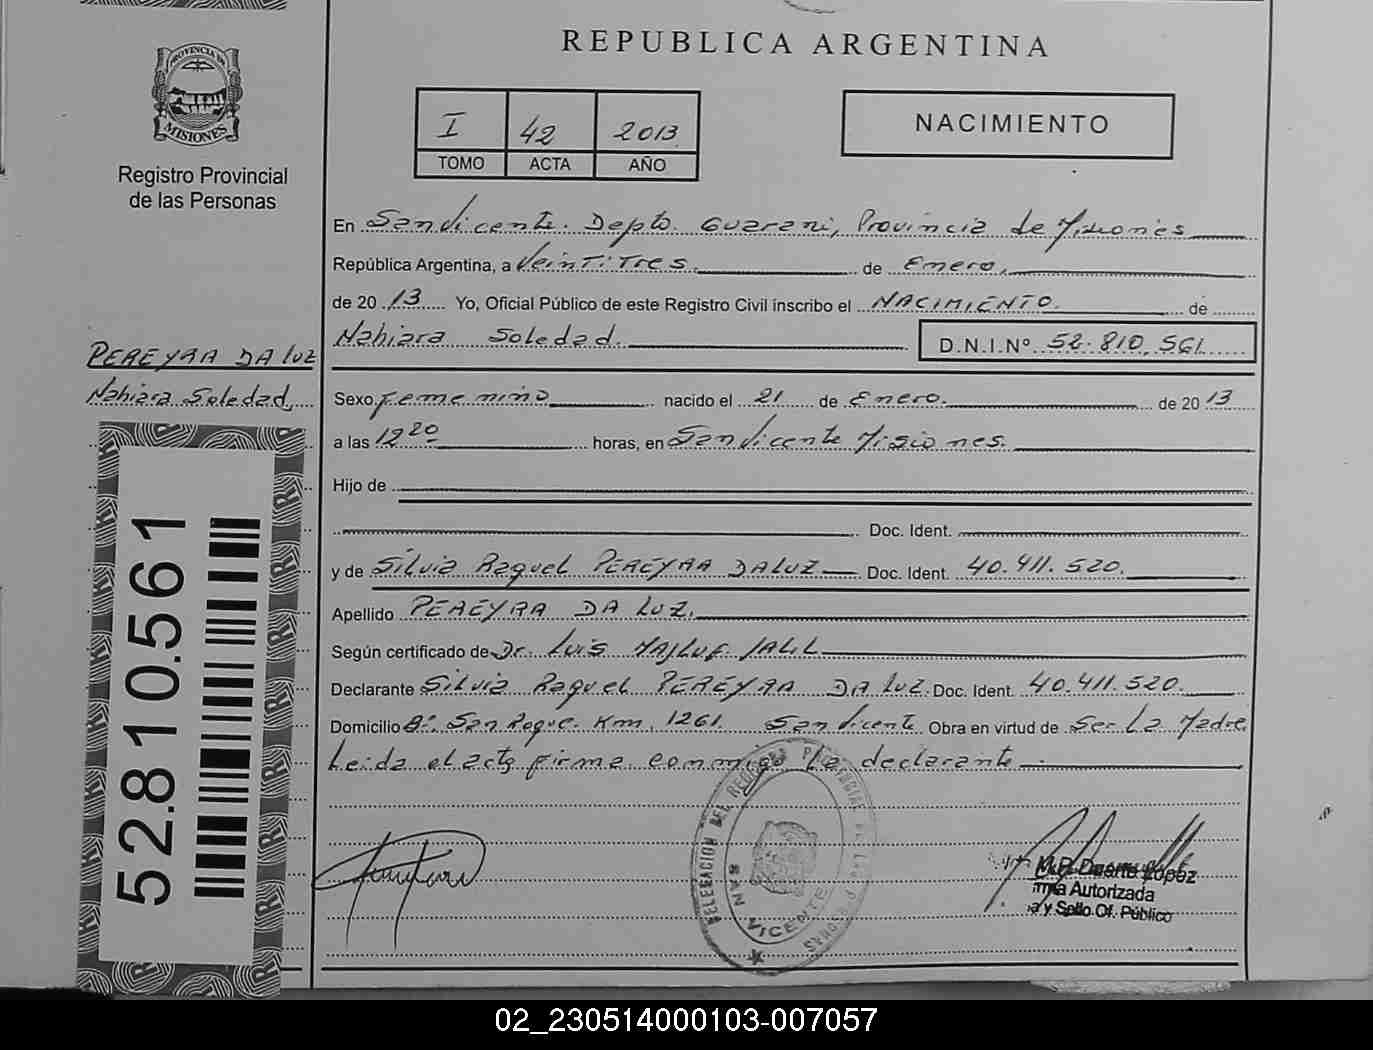 PROVINCIA DE
MISIONES
Registro Provincial
de las Personas
PEREYRA DA LUZ
Nahiara Soledad
52.810.561
REPUBLICA ARGENTINA
I 42 2013
TOMO ACTA AÑO
NACIMIENTO
En San Vicente. Depto. Guarani, Provincia de Misiones
República Argentina, a Veintitres de Enero,
de 20 13 Yo, Oficial Público de este Registro Civil inscribo el NACIMIENTO. de
Nahiara Soledad. D.N.I.Nº 52.810.561
Sexo femenino nacido el 21 de Enero. de 20 13
a las 12 20 horas, en San Vicente Misiones.
Hijo de
Doc. Ident.
y de Silvia Raquel PEREYRA DA LUZ Doc. Ident. 40.411.520.
Apellido PEREYRA DA LUZ.
Según certificado de Dr. Luis MAJLUF JALIL
Declarante Silvia Raquel PEREYRA DA LUZ. Doc. Ident. 40.411.520.
Domicilio Bº. San Roque. Km. 1261. San Vicente Obra en virtud de Ser La Madre
Leida el acta firma conmigo La declarante
DELEGACION DEL REGISTRO PROVINCIAL DE LAS PERSONAS
SAN VICENTE
Duarte López
Firma Autorizada
a y Sello Of. Público
02_230514000103-007057